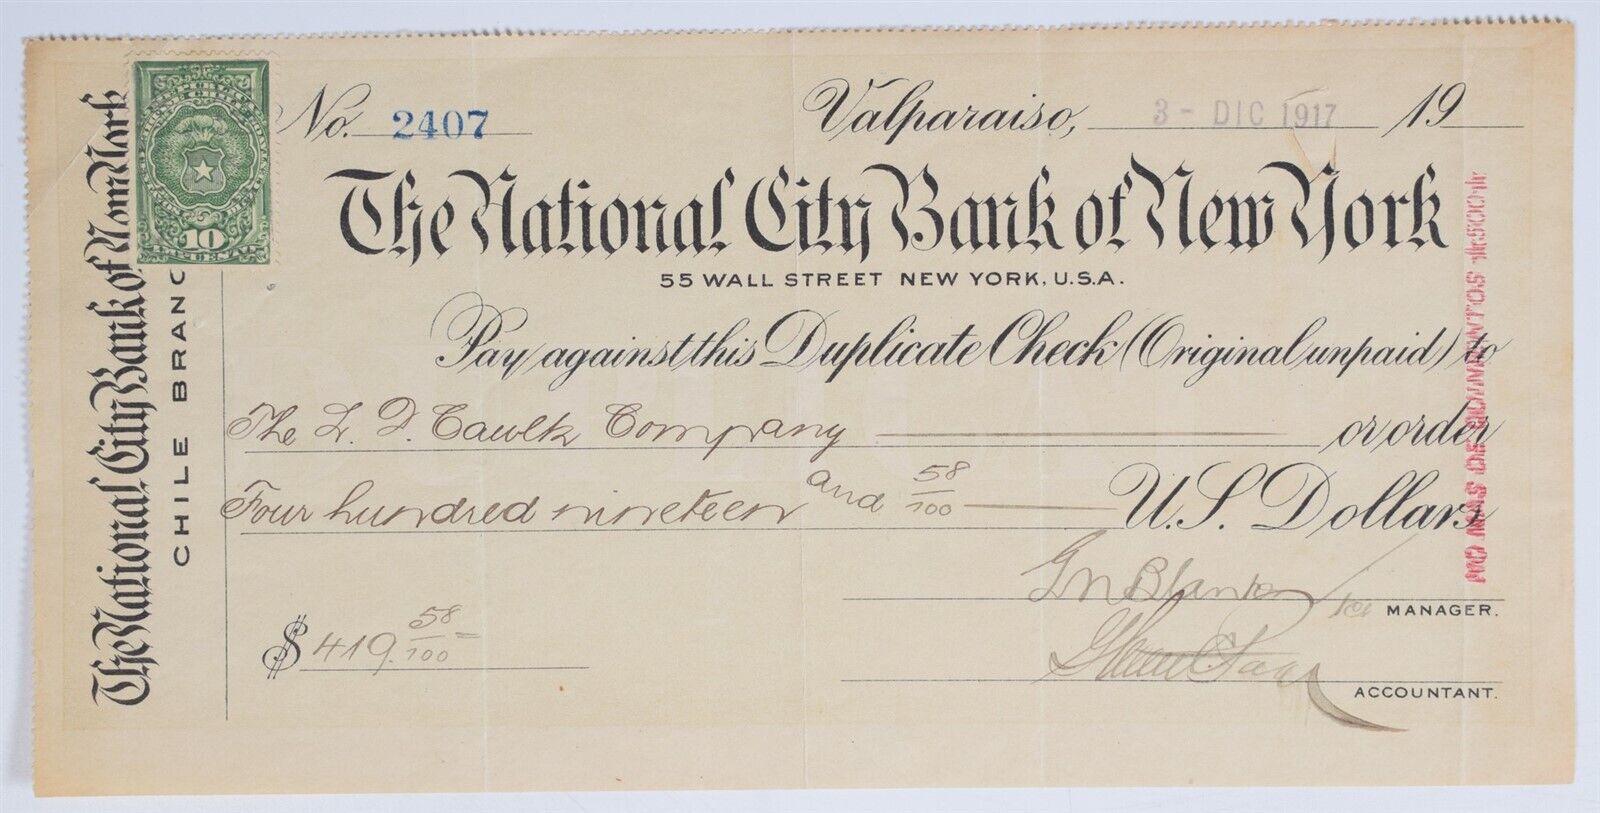 The National City Bank of New York
CHILE BRANC
10
No. 2407
Valparaiso, 3 - DIC 1917 19
The National City Bank of New York
55 WALL STREET NEW YORK, U.S.A.
Pay against this Duplicate Check (Original unpaid) to
The L. D. Caulk Company or order
Four hundred nineteen and 58/100 U.S. Dollars
NO MAS DE QUINIENTOS $500$
MANAGER.
$ 419. 58/100 =
ACCOUNTANT.